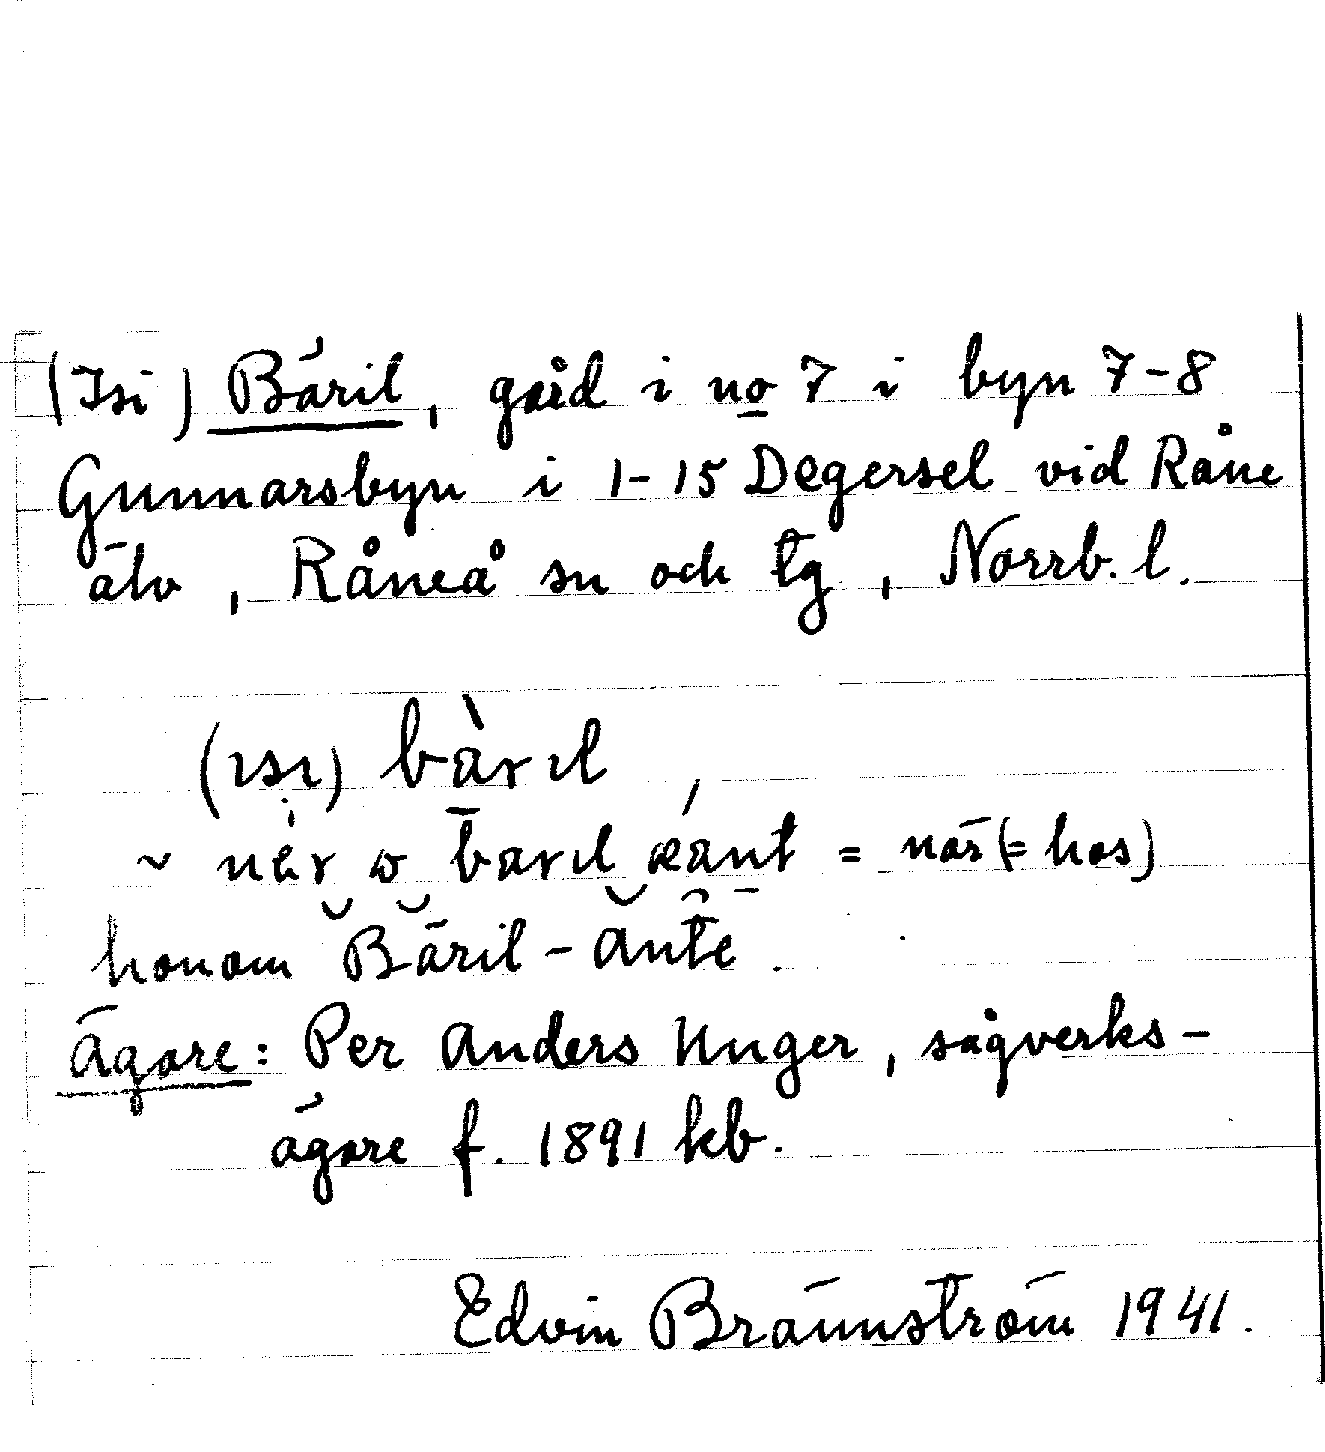 (Isi) Bäril, gård i no 7 i byn 7-8
Gunnarsbyn i 1-15 Degersel vid Råne
älv, Råneå sn och tg, Norrb. l.
(ısı) bàrıl,
~ barıl = när (= hos)
honom Bäril-Ante.
Ägare: Per Anders Unger, sågverks-
ägare f. 1891 kb.
Edvin Brännström 1941.